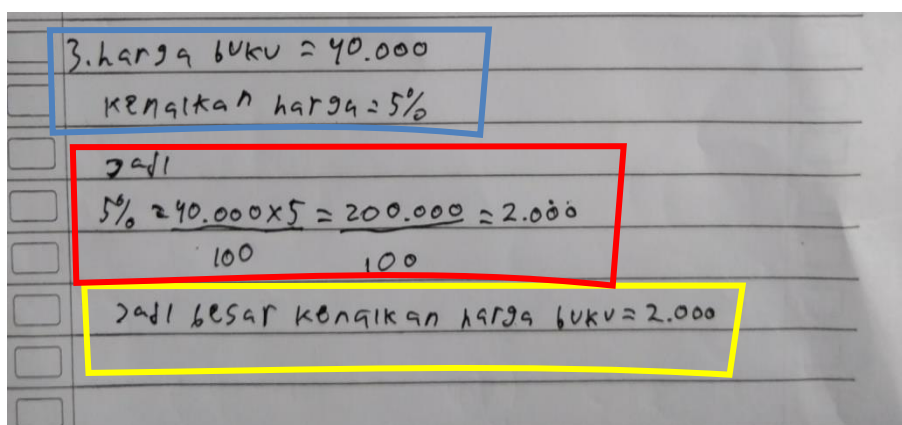 3. harga buku = 40.000
kenaikan harga = 5%
Jadi
5% = 40.000x5 = 200.000 = 2.000
100 100
Jadi besar kenaikan harga buku = 2.000